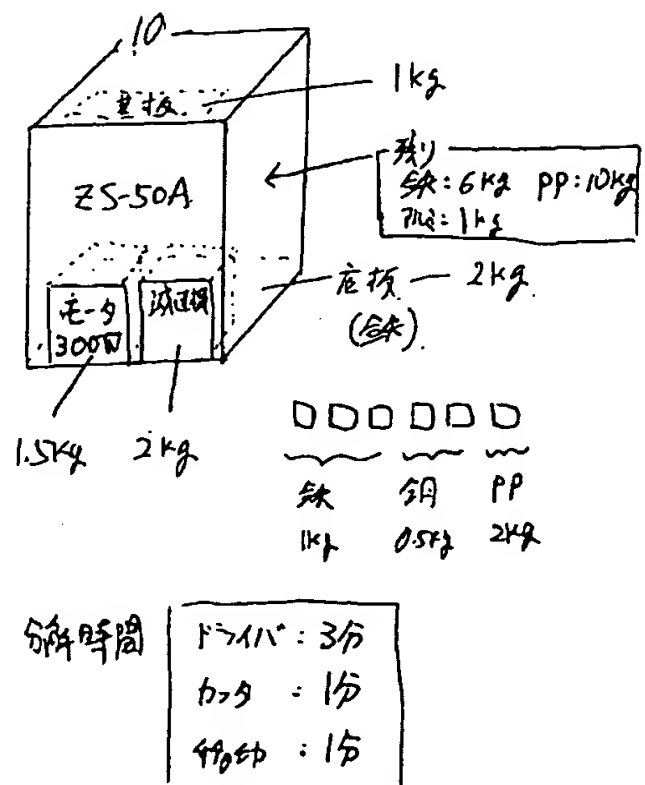 10
基板
1kg
ZS-50A
残り
鉄:6kg PP:10kg
アルミ:1kg
底板 2kg
(鉄).
モータ
300W
減速機
1.5kg 2kg
鉄 銅 PP
1kg 0.5kg 2kg
分解時間
ドライバ:3分
カッタ:1分
:1分